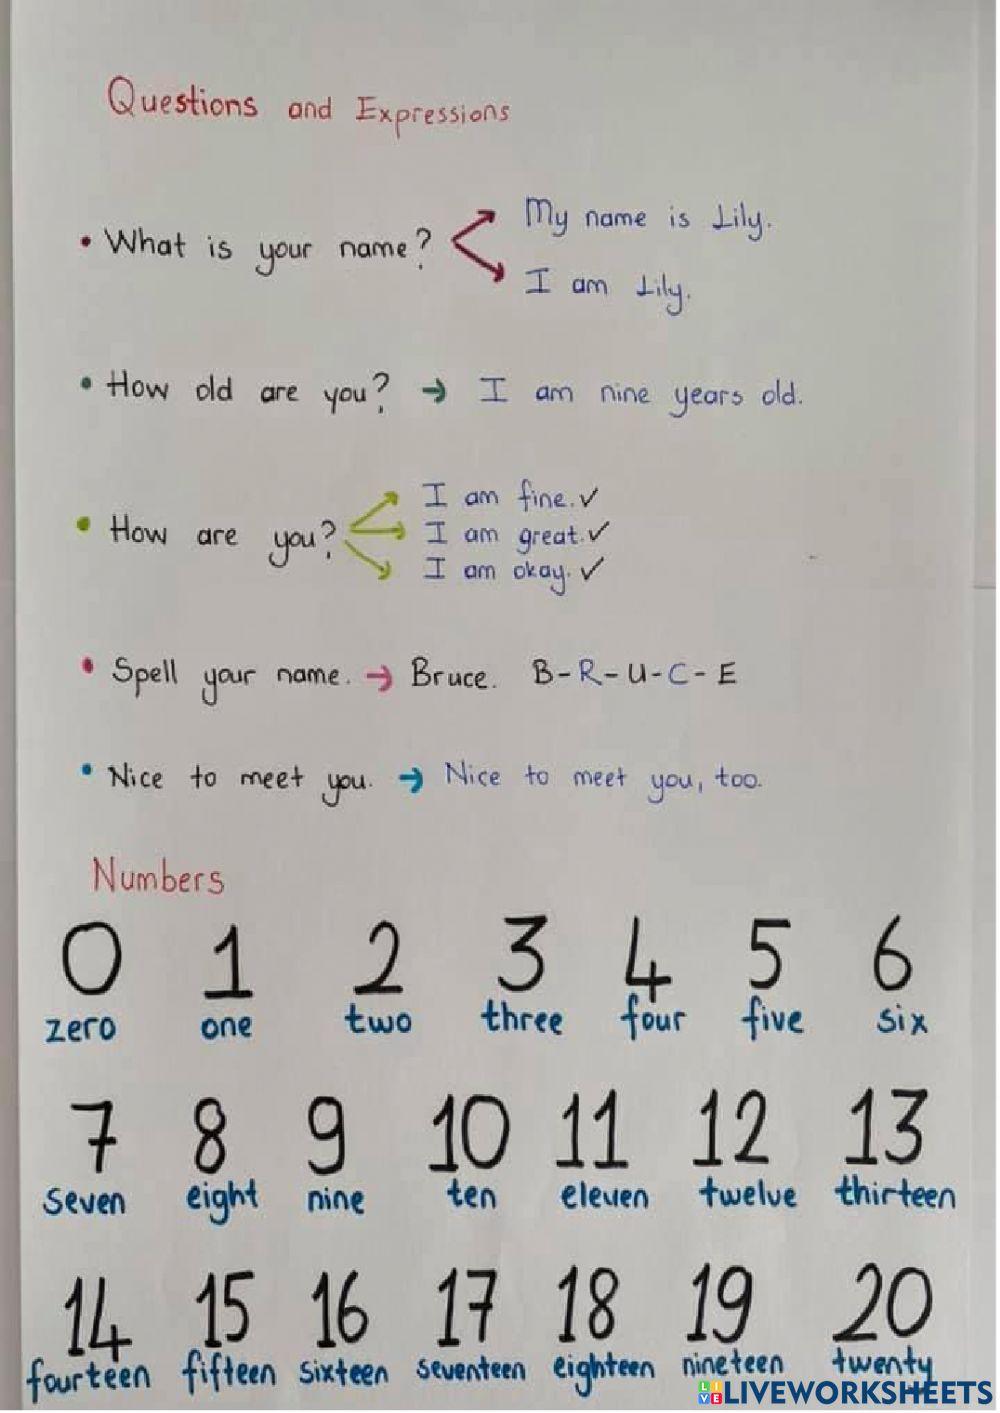 Questions and Expressions
• What is your name?
My name is Lily.
I am Lily.
• How old are you? → I am nine years old.
• How are you?
I am fine. ✓
I am great. ✓
I am okay. ✓
• Spell your name. → Bruce. B-R-U-C-E
• Nice to meet you. → Nice to meet you, too.
Numbers
0 1 2 3 4 5 6
zero one two three four five six
7 8 9 10 11 12 13
seven eight nine ten eleven twelve thirteen
14 15 16 17 18 19 20
fourteen fifteen sixteen seventeen eighteen nineteen twenty
LIVE LIVEWORKSHEETS